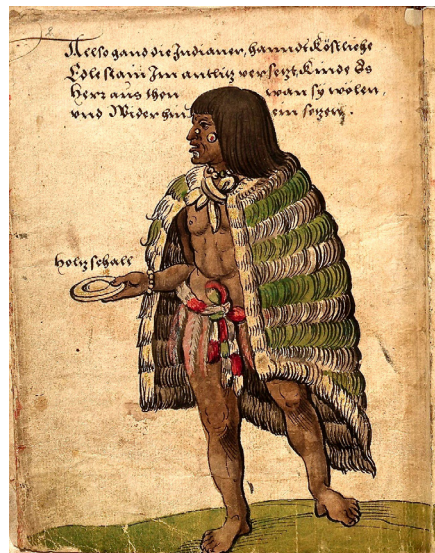 Allso gand die Indianer, hanndt Köstliche
Edlestain Im antlitz versetzt, kinde Es
herr aus then wan sy wolen,
vnd Wider hin ein setzen.
holtzschall